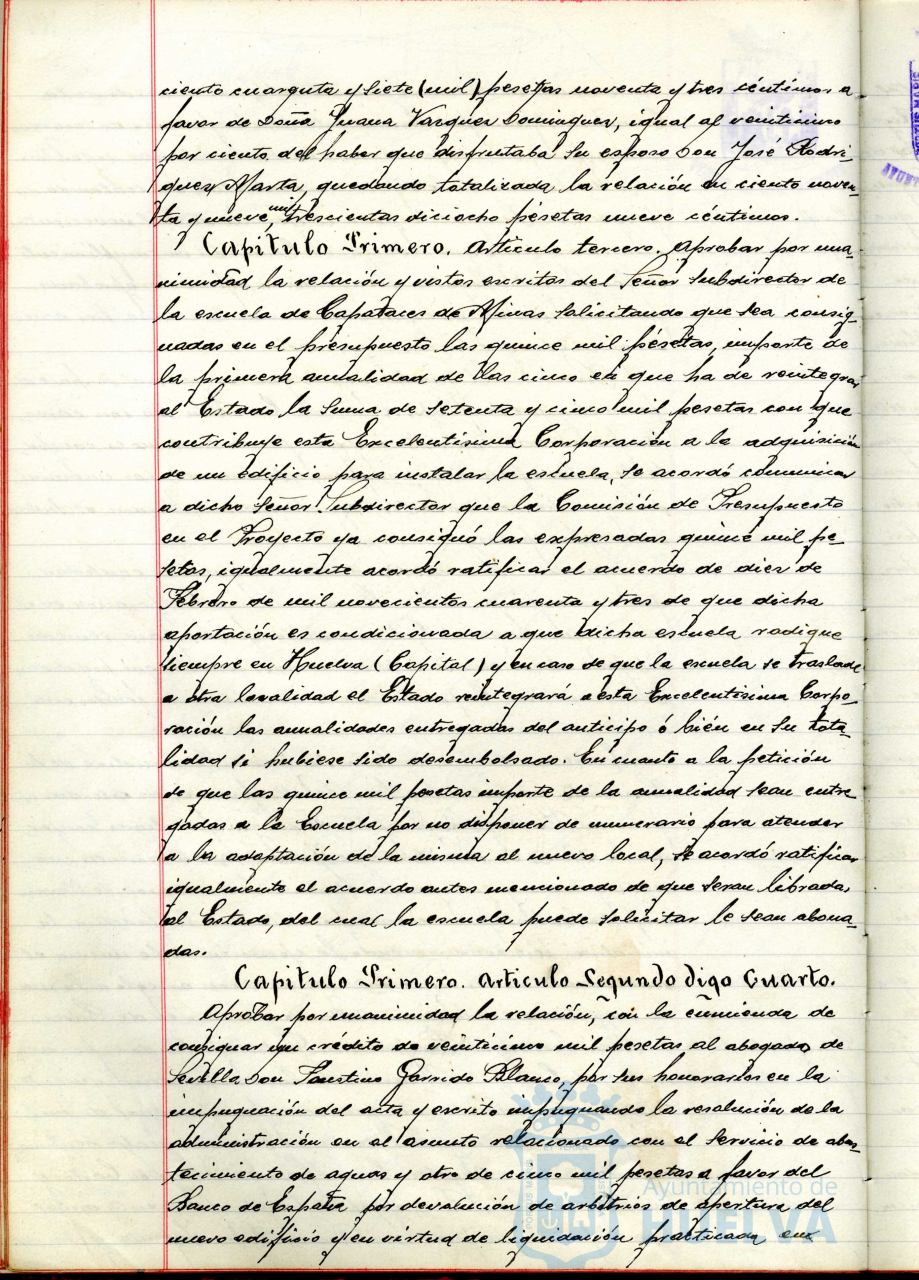 ciento cuarenta y siete (mil) pesetas noventa y tres céntimos a
favor de Doña Juana Vazquez Dominguez, igual al veinticinco
por ciento del haber que disfrutaba su esposo Don José Rodri-
guez Marta, quedando totalizada la relación en ciento noven-
ta y nueve mil trescientas dieciocho pesetas nueve céntimos.
Capitulo Primero. Articulo tercero. Aprobar por una-
nimidad la relación y vistos escritos del Señor Subdirector de
la escuela de Capataces de Minas solicitando que sea consig-
nadas en el presupuesto las quince mil pesetas, importe de
la primera anualidad de las cinco en que ha de reintegrar
al Estado la suma de setenta y cinco mil pesetas con que
contribuye esta Excelentísima Corporación a la adquisición
de un edificio para instalar la escuela, se acordó comunicar
a dicho Señor Subdirector que la Comisión de Presupuesto
en el Proyecto ya consignó las expresadas quince mil pe-
setas, igualmente acordó ratificar el acuerdo de diez de
Febrero de mil novecientos cuarenta y tres de que dicha
aportación es condicionada a que dicha escuela radique
siempre en Huelva (Capital) y en caso de que la escuela se traslade
a otra localidad el Estado reintegrará a esta Excelentísima Corpo-
ración las anualidades entregadas del anticipo ó bién en su tota-
lidad si hubiese sido desembolsado. En cuanto a la petición
de que las quince mil pesetas importe de la anualidad sean entre-
gadas a la Escuela por no disponer de numerario para atender
a la adaptación de la misma al nuevo local, se acordó ratificar
igualmente el acuerdo antes mencionado de que seran libradas
al Estado, del cual la escuela puede solicitar le sean abona-
das.
Capitulo Primero. Articulo Segundo digo Cuarto.
Aprobar por unanimidad la relación, con la enmienda de
consignar un crédito de veinticinco mil pesetas al abogado de
Sevilla Don Faustino Garrido Blanco, por sus honorarios en la
impugnación del acta y escrito impugnando la resolución de la
administración en el asunto relacionado con el servicio de abas-
tecimiento de aguas y otro de cinco mil pesetas a favor del
Banco de España por devolución de arbitrios de apertura del
nuevo edificio y en virtud de liquidación practicada en
Ayuntamiento de
HUELVA